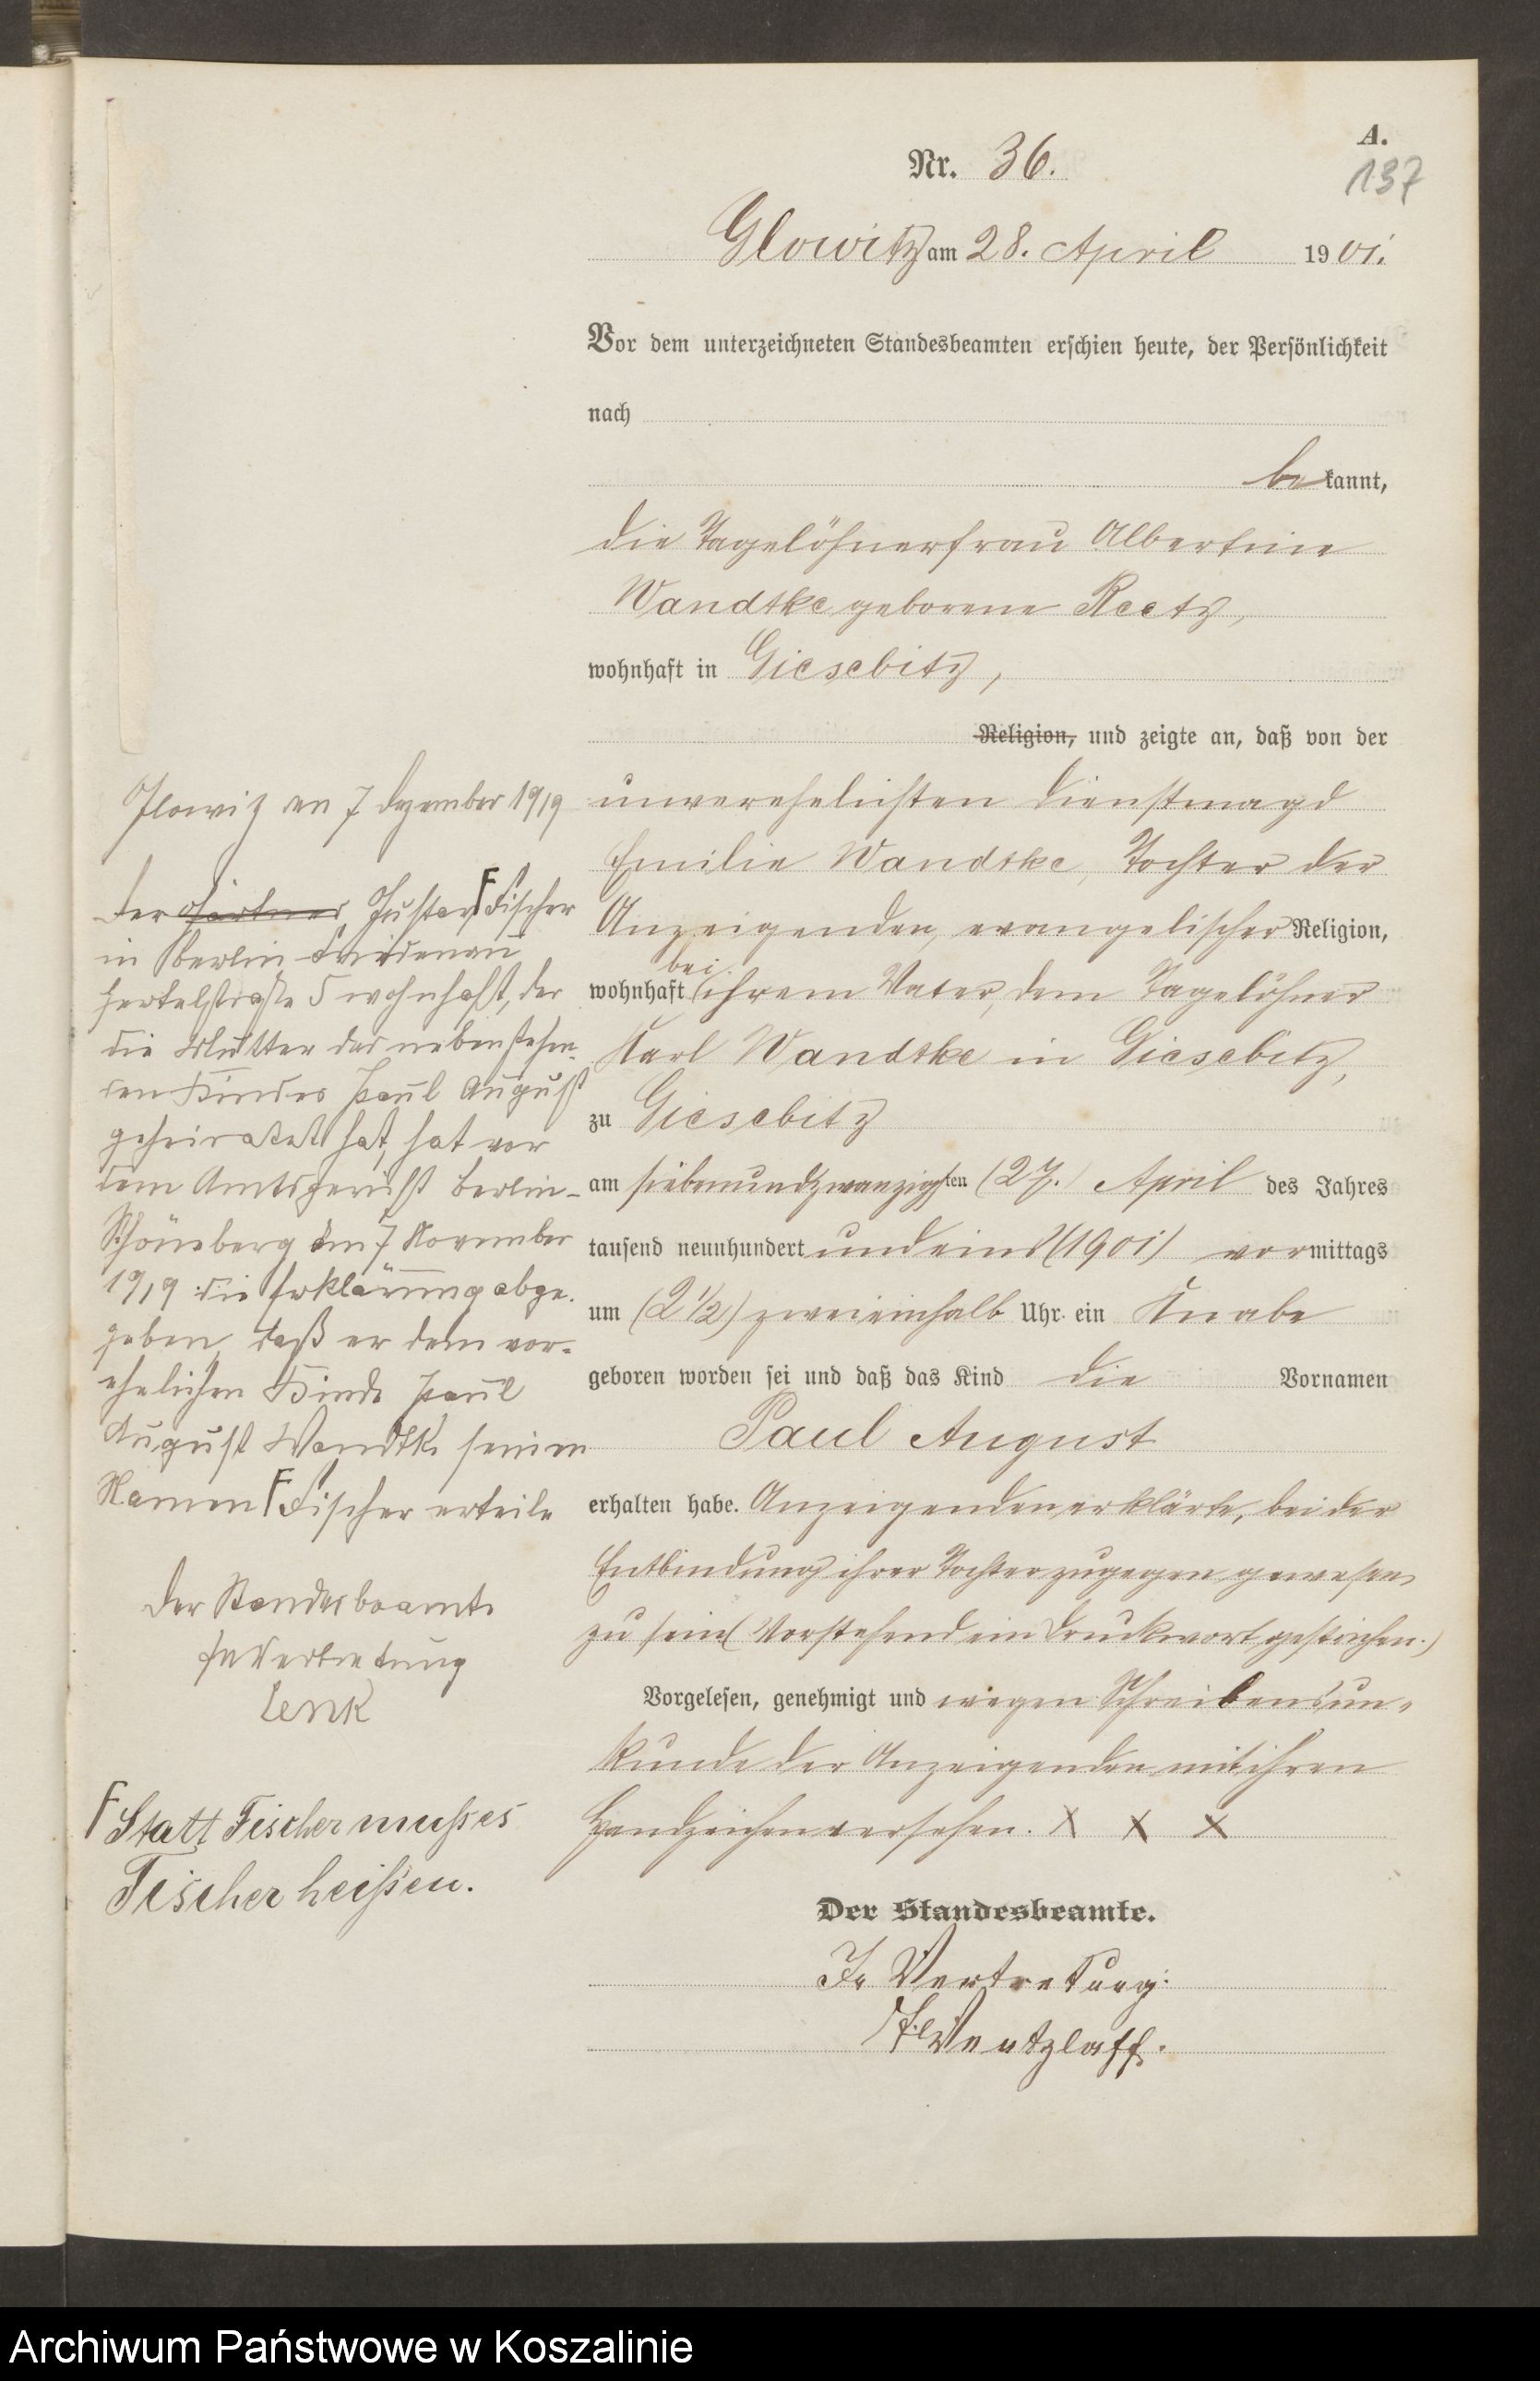 A.
137
Nr. 36.
Glowitz am 28. April 1901.
Vor dem unterzeichneten Standesbeamten erschien heute, der Persönlichkeit
nach
bekannt,
die Tagelöhnerfrau Albertine
Wandtke geborene Reetz,
wohnhaft in Giesebitz,
Religion, und zeigte an, daß von der
unverehelichten Dienstmagd
Emilie Wandtke, Tochter der
Anzeigenden, evangelischer Religion,
wohnhaft bei ihrem Vater, dem Tagelöhner
Karl Wandtke in Giesebitz,
zu Giesebitz
am siebenundzwanzigsten (27.) April des Jahres
tausend neunhundert und eins (1901) vormittags
um (2 1/2) zweieinhalb Uhr ein Knabe
geboren worden sei und daß das Kind die Vornamen
Paul August
erhalten habe. Anzeigenden erklärte, bei der
Entbindung ihrer Tochter zugegen gewesen
zu sein (Vorstehend ein Druckwort gestrichen.)
Vorgelesen, genehmigt und wegen Schreibensun-
kunde der Anzeigenden mit ihren
Handzeichen versehen. X X X
Der Standesbeamte.
In Vertretung:
Wentzlaff.
Glowitz den 7 Dezember 1919
Der Gärtner Gustav F Fischer
in Berlin Friedenau
Hertelstraße 5 wohnhaft, der
die Mutter des nebenstehen-
den Kindes Paul August
geheiratet hat, hat vor
dem Amtsgericht Berlin-
Schöneberg am 7 November
1919 die Erklärung abge-
geben, daß er dem vor-
ehelichen Kinde Paul
August Wandtke seinen
Namen F Fischer erteile
Der Standesbeamte
In Vertretung
Lenk
F Statt Fischer muss es
Tischer heissen.
Archiwum Państwowe w Koszalinie